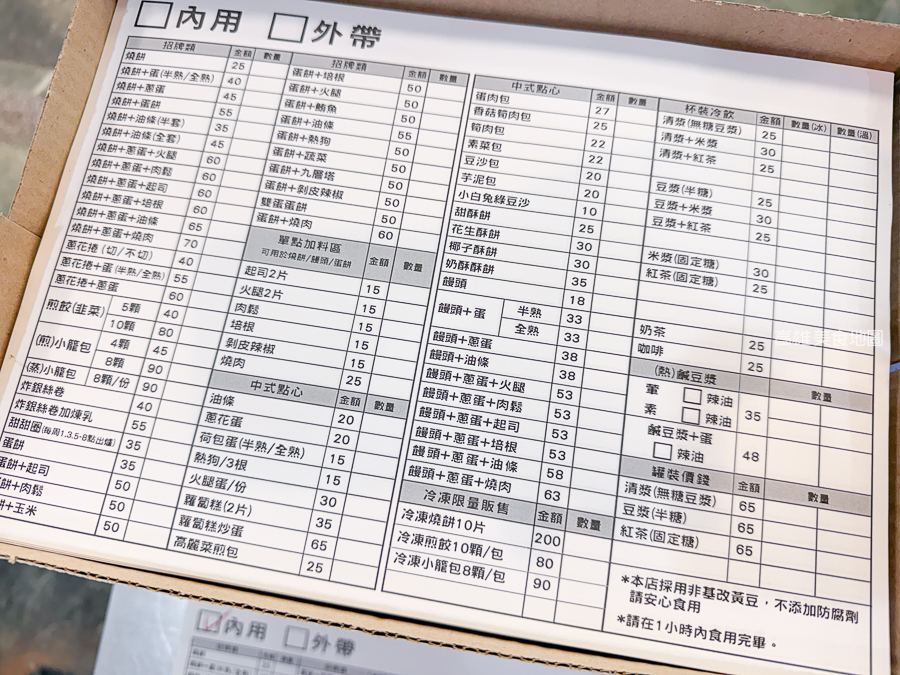 內用 外帶
招牌類 金額 數量
燒餅 25
燒餅+蛋(半熟/全熟) 40
燒餅+蔥蛋 45
燒餅+蛋餅 55
燒餅+油條(半套) 35
燒餅+油條(全套) 45
燒餅+蔥蛋+火腿 60
燒餅+蔥蛋+肉鬆 60
燒餅+蔥蛋+起司 60
燒餅+蔥蛋+培根 60
燒餅+蔥蛋+油條 65
燒餅+蔥蛋+燒肉 70
蔥花捲(切/不切) 40
蔥花捲+蛋(半熟/全熟) 55
蔥花捲+蔥蛋 60
煎餃(韭菜) 5顆 40
10顆 80
(煎)小籠包 4顆 45
8顆 90
(蒸)小籠包 8顆/份 90
炸銀絲卷 40
炸銀絲卷加煉乳 55
甜甜圈(每周1.3.5-8點出爐) 35
蛋餅 35
蛋餅+起司 50
餅+肉鬆 50
餅+玉米 50
招牌類 金額 數量
蛋餅+培根 50
蛋餅+火腿 50
蛋餅+鮪魚 50
蛋餅+油條 55
蛋餅+熱狗 50
蛋餅+蔬菜 50
蛋餅+九層塔 50
蛋餅+剝皮辣椒 50
雙蛋蛋餅 50
蛋餅+燒肉 60
單點加料區 金額 數量
可用於燒餅/饅頭/蛋餅
起司2片 15
火腿2片 15
肉鬆 15
培根 15
剝皮辣椒 15
燒肉 25
中式點心 金額 數量
油條 20
蔥花蛋 20
荷包蛋(半熟/全熟) 15
熱狗/3根 15
火腿蛋/份 30
蘿蔔糕(2片) 35
蘿蔔糕炒蛋 65
高麗菜煎包 25
中式點心 金額 數量
蛋肉包 27
香菇筍肉包 25
筍肉包 22
素菜包 22
豆沙包 20
芋泥包 20
小白兔綠豆沙 10
甜酥餅 25
花生酥餅 30
椰子酥餅 30
奶酥酥餅 35
饅頭 18
饅頭+蛋 半熟 33
全熟 33
饅頭+蔥蛋 38
饅頭+油條 38
饅頭+蔥蛋+火腿 53
饅頭+蔥蛋+肉鬆 53
饅頭+蔥蛋+起司 53
饅頭+蔥蛋+培根 53
饅頭+蔥蛋+油條 58
饅頭+蔥蛋+燒肉 63
冷凍限量販售 金額 數量
冷凍燒餅10片 200
冷凍煎餃10顆/包 80
冷凍小籠包8顆/包 90
杯裝冷飲 金額 數量(冰) 數量(溫)
清漿(無糖豆漿) 25
清漿+米漿 30
清漿+紅茶 25
豆漿(半糖) 25
豆漿+米漿 30
豆漿+紅茶 25
米漿(固定糖) 30
紅茶(固定糖) 25
奶茶 25
咖啡 25
(熱)鹹豆漿 數量
葷 辣油 35
素 辣油
鹹豆漿+蛋 48
辣油
罐裝價錢 金額 數量
清漿(無糖豆漿) 65
豆漿(半糖) 65
紅茶(固定糖) 65
*本店採用非基改黃豆，不添加防腐劑
請安心食用
*請在1小時內食用完畢。
高雄美食地圖
內用 外帶